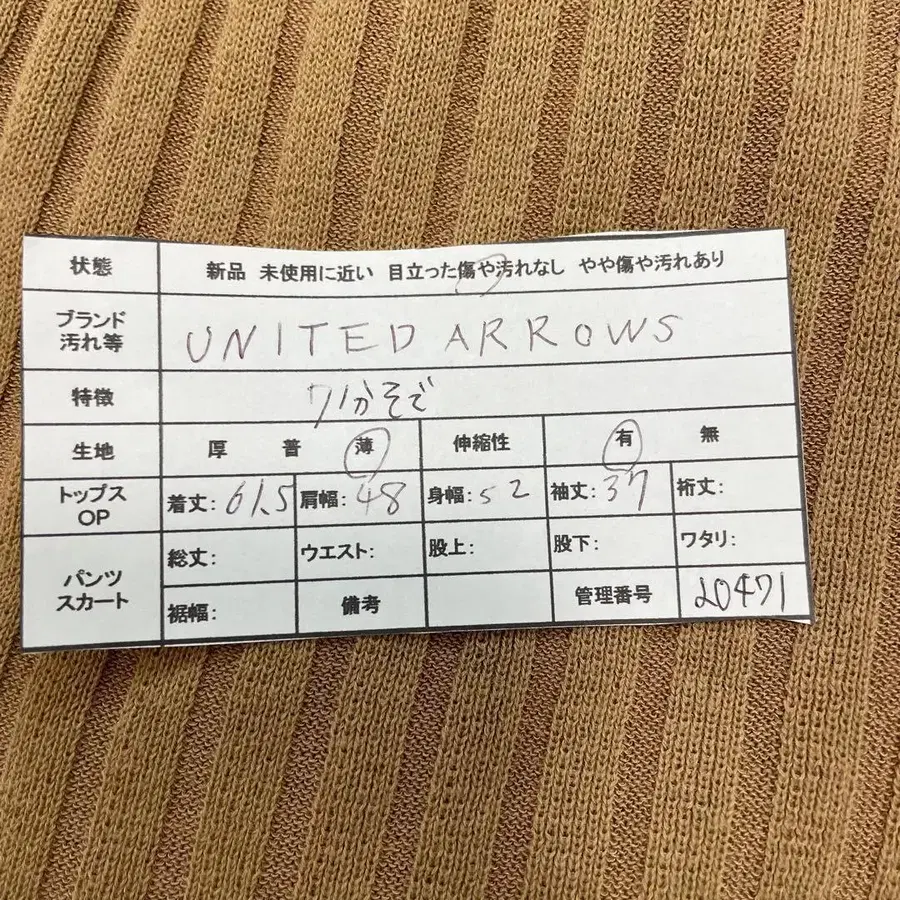 状態 新品 未使用に近い 目立った傷や汚れなし やや傷や汚れあり
ブランド
汚れ等 UNITED ARROWS
特徴 7分そで
生地 厚 普 薄 伸縮性 有 無
トップス
OP 着丈: 61.5 肩幅: 48 身幅: 52 袖丈: 37 裄丈:
パンツ
スカート 総丈: ウエスト: 股上: 股下: ワタリ:
裾幅: 備考 管理番号 20471